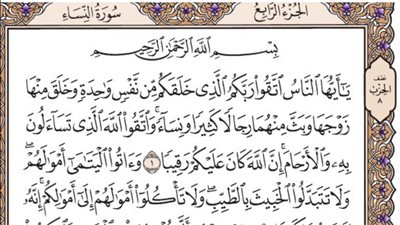 سُورَةُ النِّسَاءِ
الجُزْءُ الرَّابِعُ
بِسْمِ اللَّهِ الرَّحْمَٰنِ الرَّحِيمِ
يَٰٓأَيُّهَا النَّاسُ اتَّقُوا رَبَّكُمُ الَّذِى خَلَقَكُم مِّن نَّفْسٍ وَٰحِدَةٍ وَخَلَقَ مِنْهَا
زَوْجَهَا وَبَثَّ مِنْهُمَا رِجَالًا كَثِيرًا وَنِسَآءً ۚ وَاتَّقُوا اللَّهَ الَّذِى تَسَآءَلُونَ
بِهِۦ وَالْأَرْحَامَ ۚ إِنَّ اللَّهَ كَانَ عَلَيْكُمْ رَقِيبًا ١ وَءَاتُوا الْيَتَٰمَىٰٓ أَمْوَٰلَهُمْ ۖ
وَلَا تَتَبَدَّلُوا الْخَبِيثَ بِالطَّيِّبِ ۖ وَلَا تَأْكُلُوٓا أَمْوَٰلَهُمْ إِلَىٰٓ أَمْوَٰلِكُمْ ۚ إِنَّهُۥ
نصف
الحزب
٨